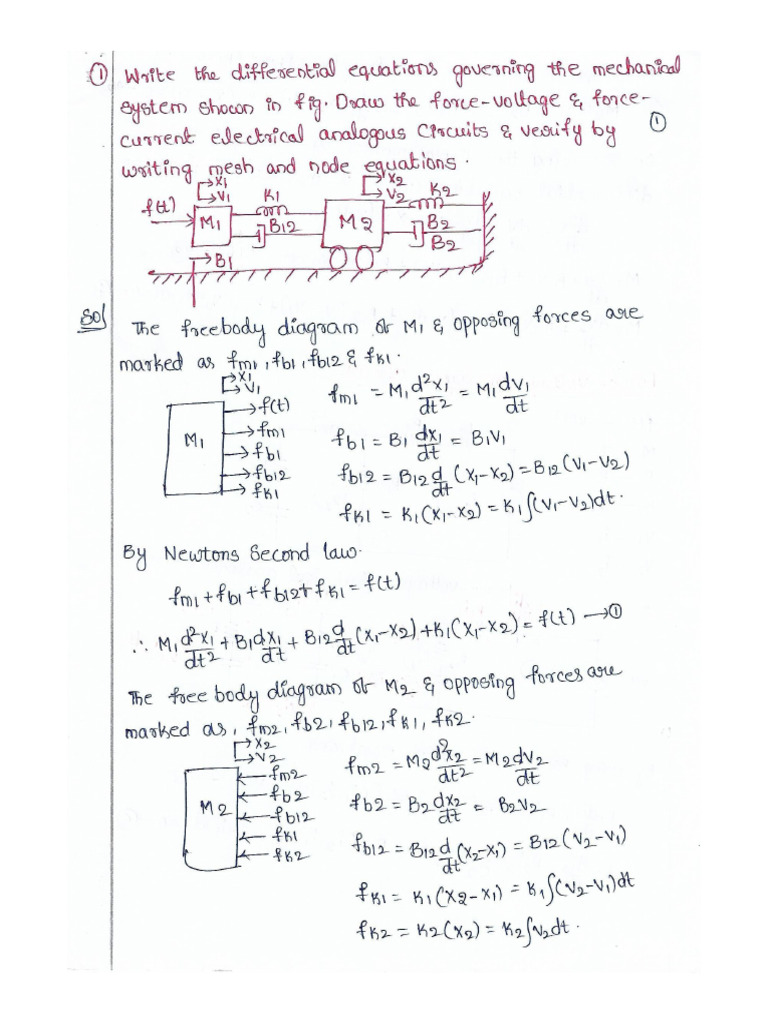 ① Write the differential equations governing the mechanical
system shown in fig. Draw the force-voltage & force-
current electrical analogous Circuits & verify by ①
writing mesh and node equations.
x1 x2
v1 K1 v2 K2
f(t) M1 B12 M2 B2
B2
B1
Sol The freebody diagram of M1 & opposing forces are
marked as fm1, fb1, fb12 & fK1.
x1
v1
M1
f(t)
fm1
fb1
fb12
fK1
fm1 = M1 d²x1/dt² = M1 dv1/dt
fb1 = B1 dx1/dt = B1V1
fb12 = B12 d/dt (x1-x2) = B12 (v1-v2)
fK1 = K1(x1-x2) = K1∫(v1-v2)dt.
By Newtons Second law.
fm1+fb1+fb12+fK1=f(t)
∴ M1 d²x1/dt² + B1 dx1/dt + B12 d/dt (x1-x2) + K1(x1-x2) = f(t) →①
The free body diagram of M2 & opposing forces are
marked as, fm2, fb2, fb12, fK1, fK2.
x2
v2
M2
fm2
fb2
fb12
fK1
fK2
fm2 = M2 d²x2/dt² = M2 dv2/dt
fb2 = B2 dx2/dt = B2V2
fb12 = B12 d/dt (x2-x1) = B12 (v2-v1)
fK1 = K1(x2-x1) = K1∫(v2-v1)dt
fK2 = K2(x2) = K2∫v2dt.